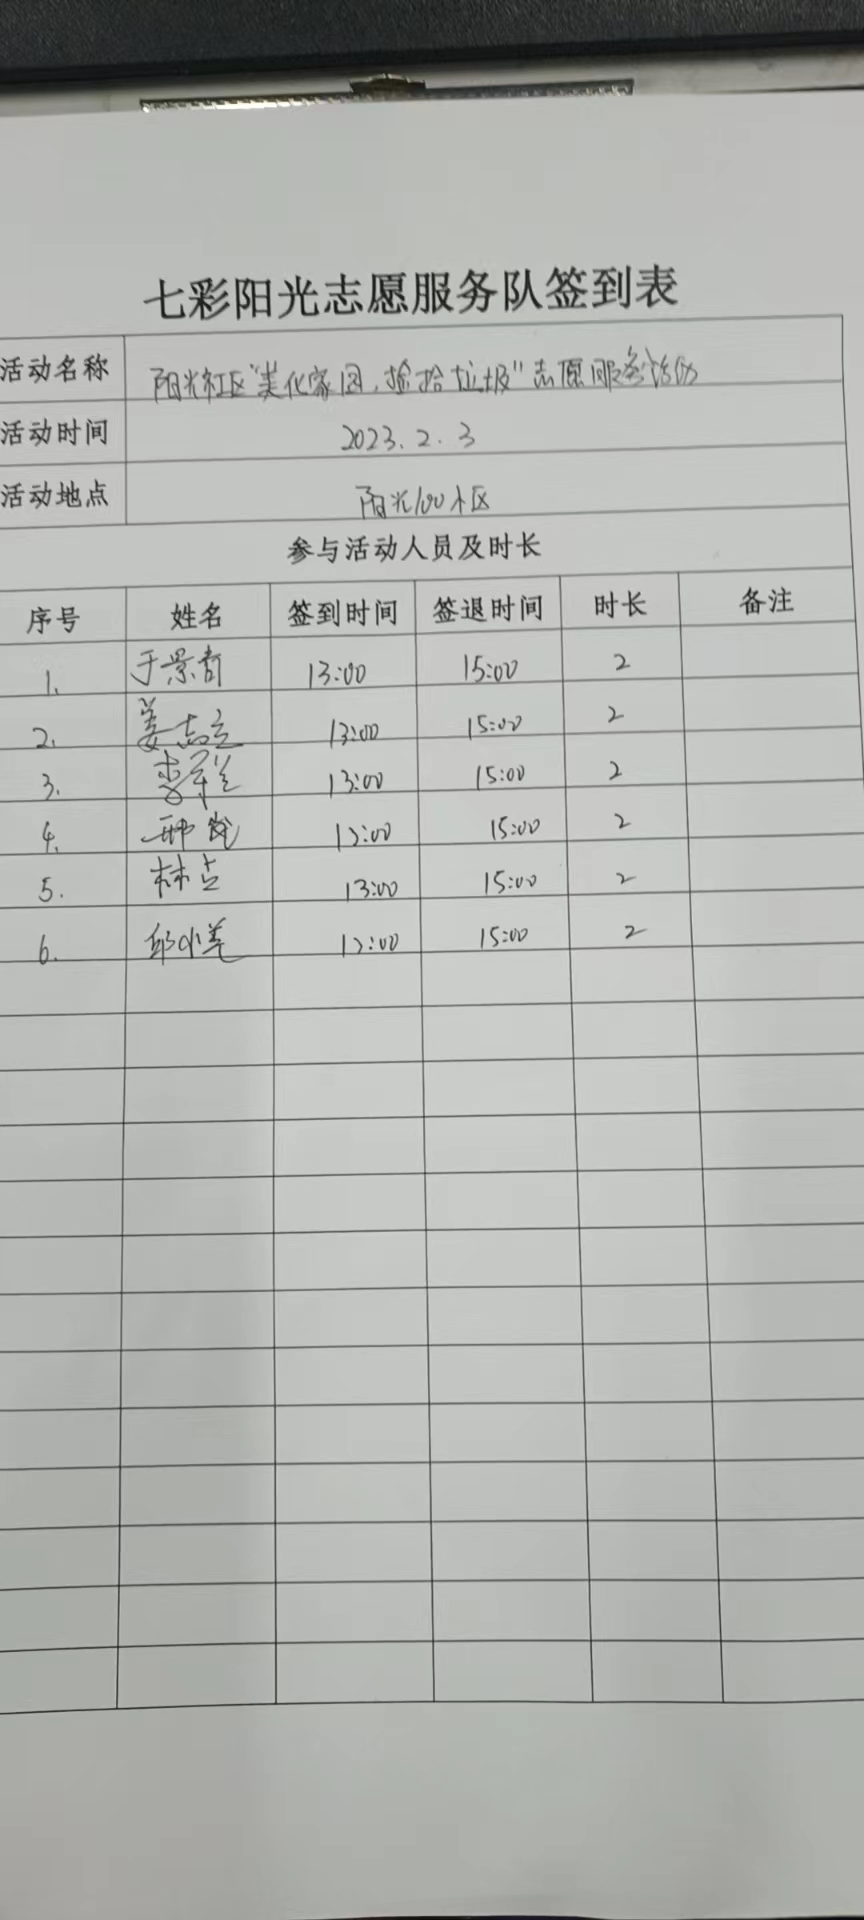 七彩阳光志愿服务队签到表
活动名称 阳光社区“美化家园，捡拾垃圾”志愿服务活动
活动时间 2023.2.3
活动地点 阳光100小区
参与活动人员及时长
序号 姓名 签到时间 签退时间 时长 备注
1. 于景 13:00 15:00 2
2. 姜志立 13:00 15:00 2
3. 李 13:00 15:00 2
4. 15:00 2
5. 林 13:00 15:00 2
6. 邱小 15:00 2